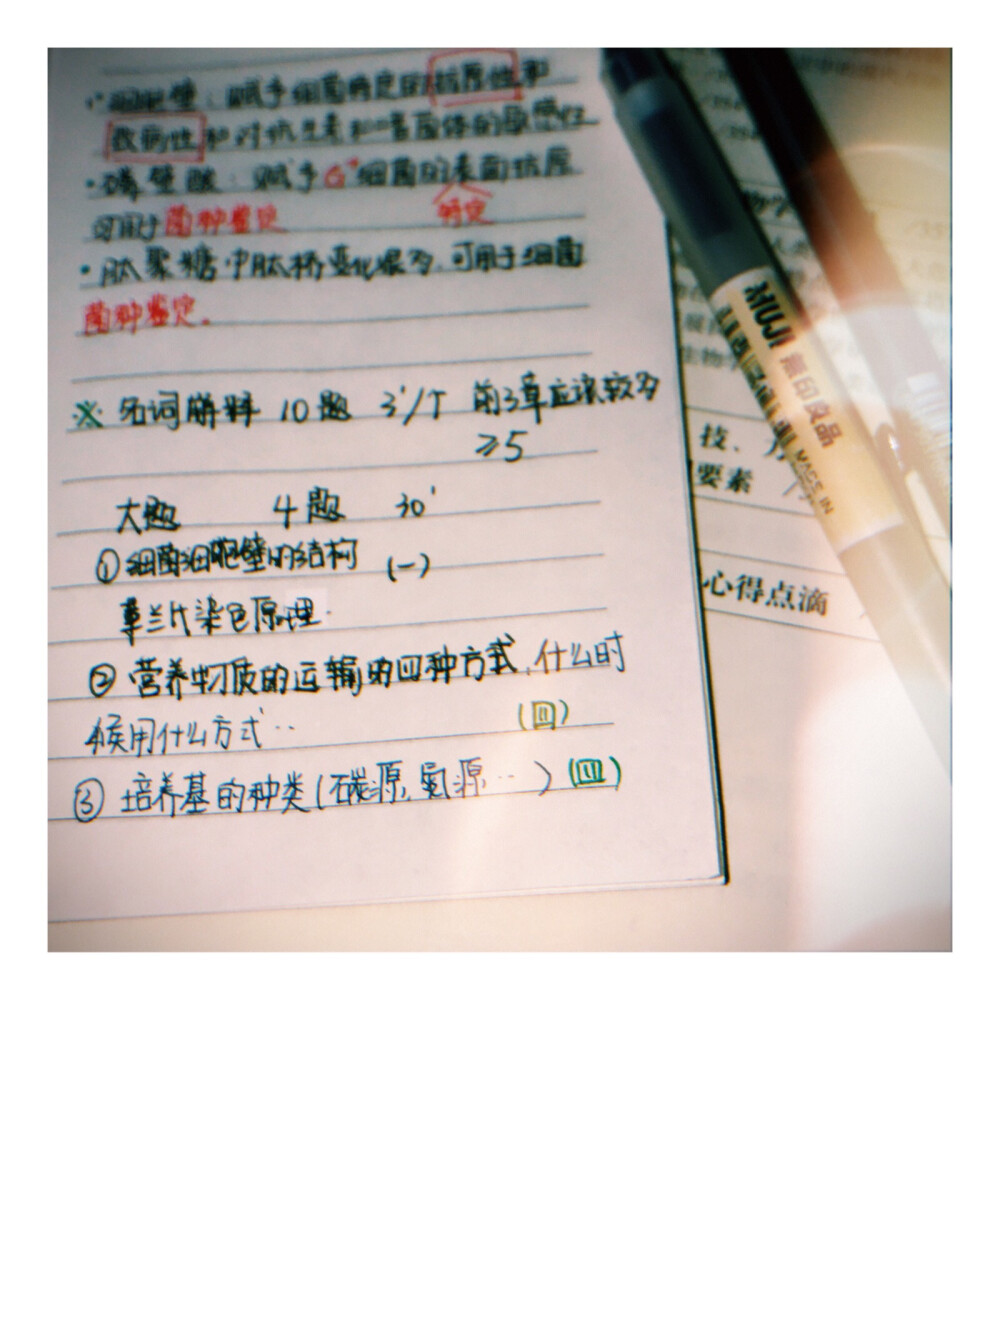 ·细胞壁：赋予细菌特定的抗原性和
致病性和对抗生素和噬菌体的敏感性
·磷壁酸：赋予G⁺细菌的表面抗原
特定
可用于菌种鉴定
·肽聚糖中肽桥变化很多，可用于细菌
菌种鉴定。
※ 名词解释 10题 3'/个 前3章应该较多
≥5
大题 4题 30'
①细菌细胞壁的结构 (一)
革兰氏染色原理.
②营养物质的运输的四种方式,什么时
候用什么方式·· (四)
③培养基的种类(碳源,氮源··) (四)
MUJI 無印良品
MADE IN
技、
要素
心得点滴